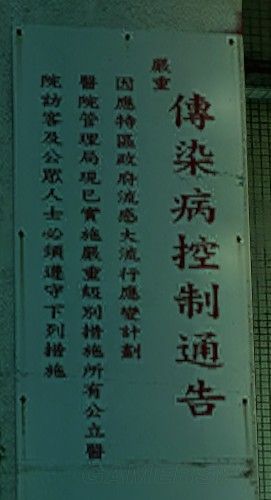 嚴重
傳染病控制通告
因應特區政府流感大流行應變計劃
醫院管理局現已實施嚴重級別措施所有公立醫
院訪客及公眾人士必須遵守下列措施